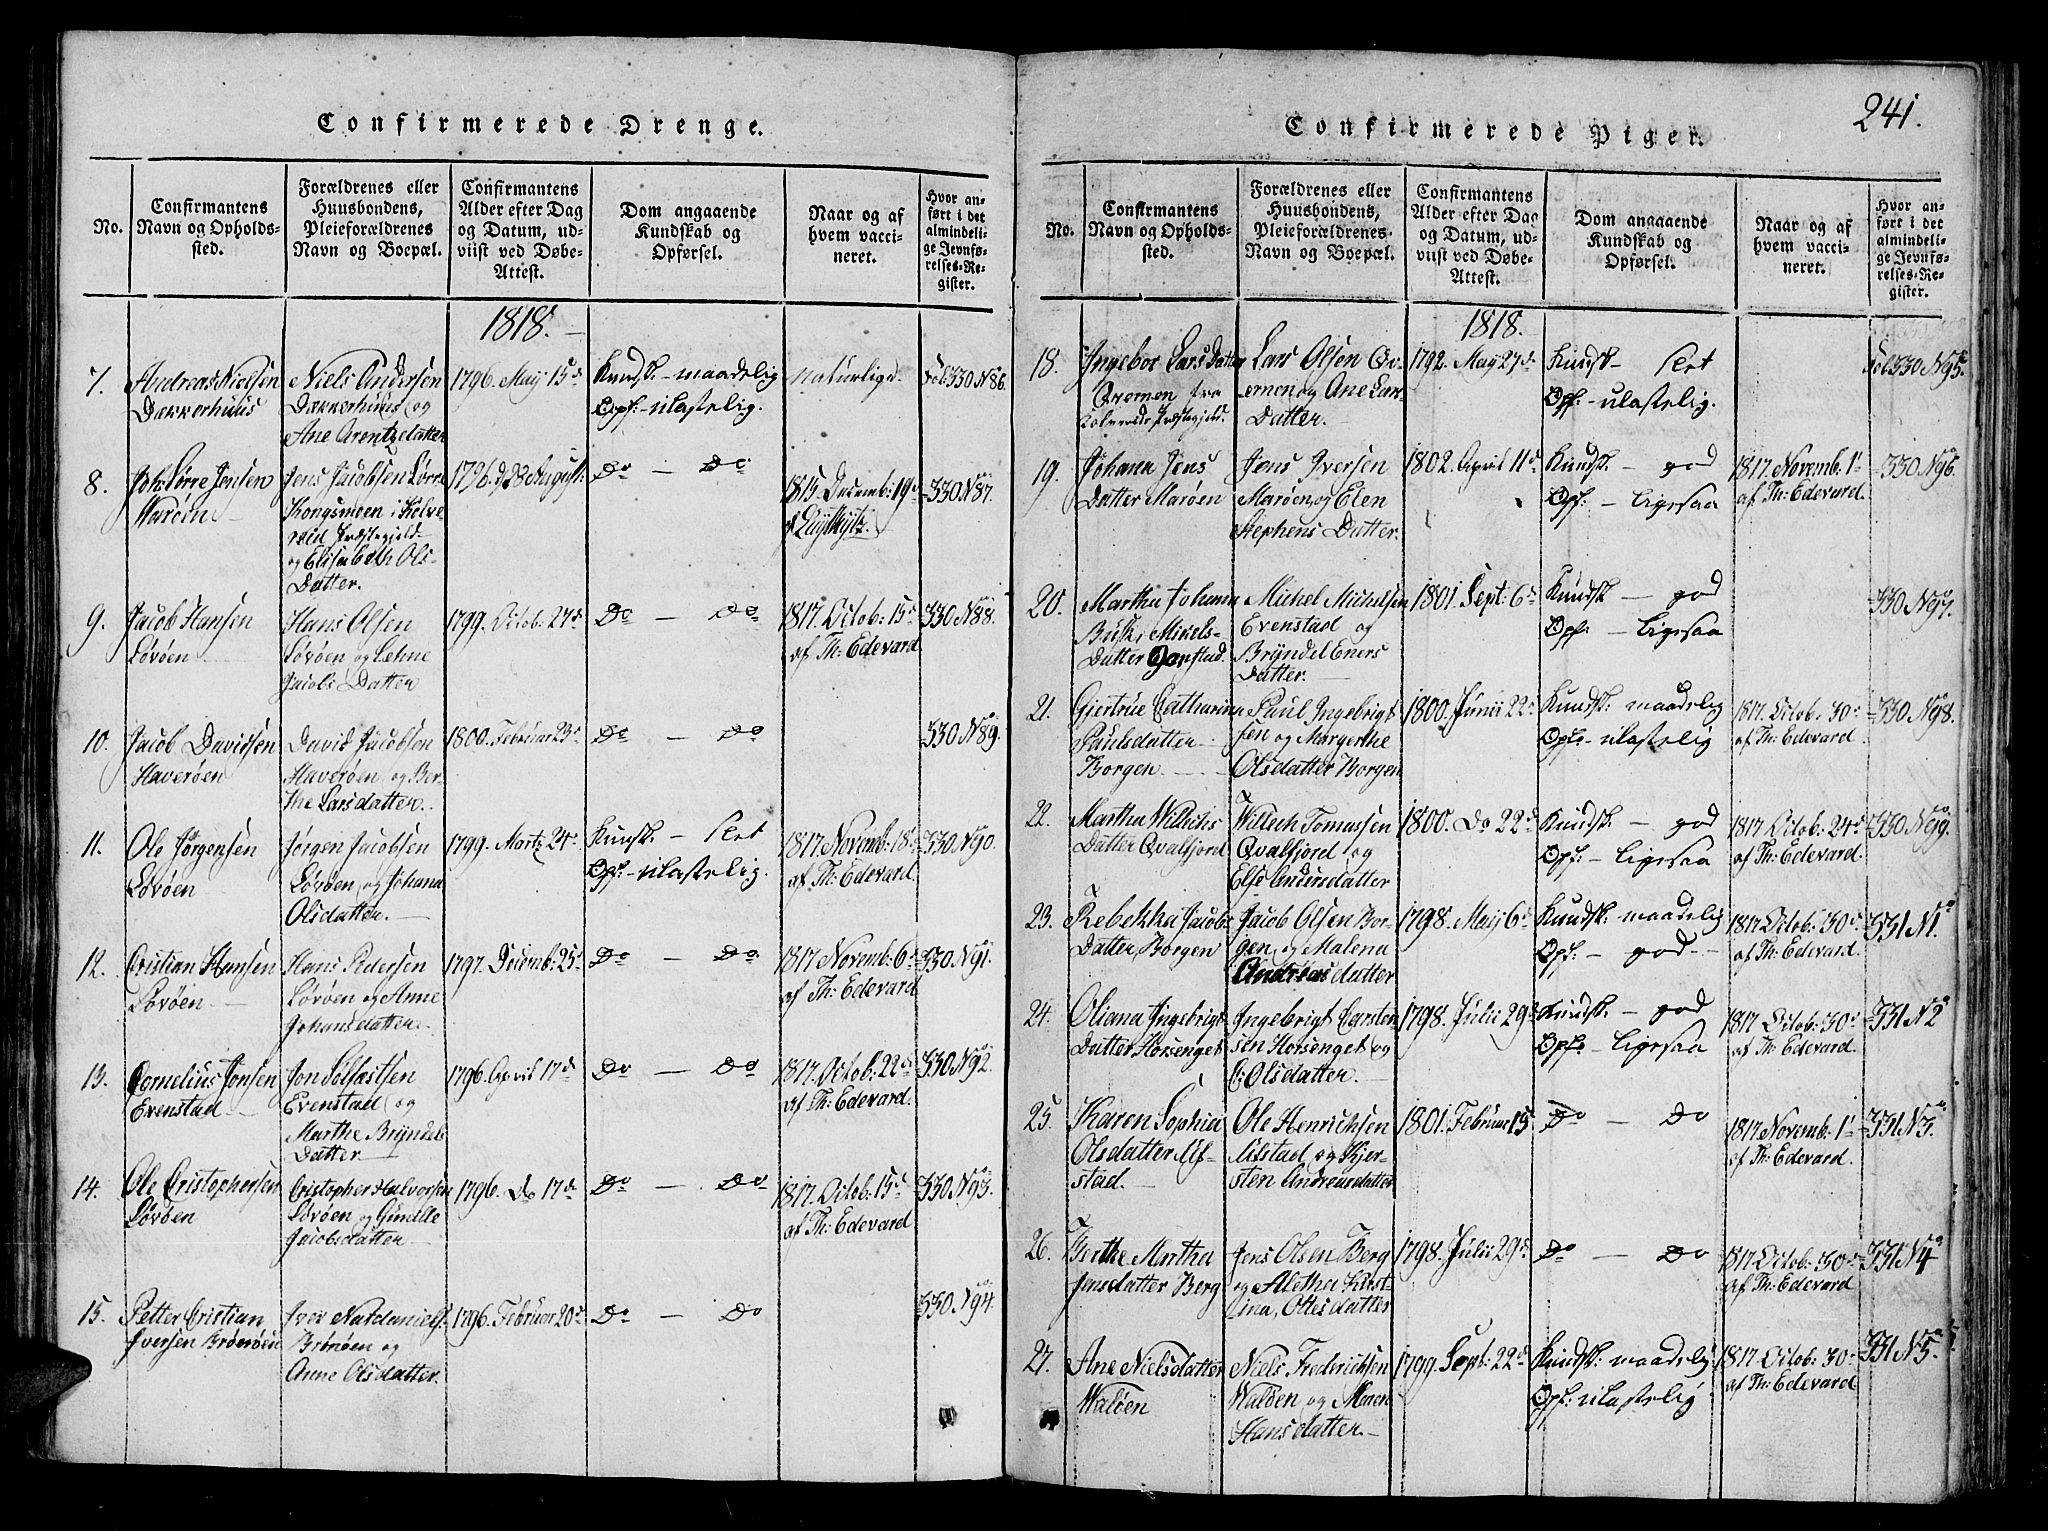 241.
Confirmerede Drenge.
No.
Confirmantens
Navn og Opholds-
sted.
Forældrenes eller
Huusbondens,
Pleieforældrenes
Navn og Boepæl.
Confirmantens
Alder efter Dag
og Datum, ud-
viist ved Døbe-
Attest.
Dom angaaende
Kundskab og
Opførsel.
Naar og af
hvem vacci-
neret.
Hvor an-
ført i det
almindeli-
ge Jevnfø-
relses-Re-
gister.
1818.
7.
Andreas Nielsen
Dækkerhuus
Niels Andersen
Dækkerhuus og
Ane Arentzdatter
1796. Maij 15d
Kundsk: - maadelig
Opf: - ulastelig.
Naturlige.
Fol 330 No 86.
8.
Joh: Lorre Jensen
Marøen
Jens Jacobsen Lorre
Kongsmoen i Kolve-
reid Præstegjeld
og Elisabeth Ols-
Datter.
1796. d 28 August:
Do - Do
1815. Decemb: 19d
330 No 87.
9.
Jacob Hansen
Lovøen
Hans Olsen
Lovøen og Lehne
Jacobs Datter
1799. Octob: 27d
Do - Do
1817. Octob: 15d
af Th: Edevard
330 No 88.
10.
Jacob Davidsen
Haverøen
David Jacobsen
Haverøen og Ber-
the Larsdatter.
1800. Februar 23d
Do - Do
330 No 89.
11.
Ole Jørgensen
Lovøen
Jørgen Jacobsen
Lovøen og Johana
Olsdatter.
1799. Martz 24d
Kundsk - slet
Opf: - ulastelig.
1817. Novemb: 18d
af Th: Edevard.
330. No 90.
12.
Cristian Hansen
Lovøen
Hans Pedersen
Lovøen og Anne
Johansdatter.
1797. Decemb: 25d
Do - Do
1817 Novemb: 6d
af Th: Edevard
330. No 91.
13.
Cornelius Jonsen
Evenstad
Jon Solfastsen
Evenstad og
Marthe Bryndels
Datter
1796. April 17d
Do - Do
1817. Octob: 22d
af Th: Edevard.
330 No 92.
14.
Ole Cristophersen
Lovøen
Cristopher Halvorsen
Lovøen og Gunille
Jacobsdatter
1796. Do 17d
Do - Do
1817. Octob: 15d
af Th: Edevard
330 No 93.
15.
Petter Cristian
Iversen Brømøen
Iver Natdaniels.
Brømøen og
Anne Olsdatter.
1796. Februar 20d
Do - Do
330 No 94.
Confirmerede Piger.
No.
Confirmantens
Navn og Opholds-
sted.
Forældrenes eller
Huusbondens,
Pleieforældrenes
Navn og Boepæl.
Confirmantens
Alder efter Dag
og Datum, ud-
viist ved Døbe-
Attest.
Dom angaaende
Kundskab og
Opførsel.
Naar og af
hvem vacci-
neret.
Hvor an-
ført i det
almindeli-
ge Jevnfø-
relses-Re-
gister.
1818.
18.
Ingebor Lars Datter
Qvernen fra
Kolvereids Præstegjeld.
Lars Olsen Qv-
ernen og Ane Lars
Datter.
1792. Maij 27d
Kundsk - slet
Opf: - ulastelig.
Fol 330 No 95.
19.
Johana Jens
Datter Marøen
Jens Iversen
Marøen og Elen
Stephens Datter.
1802. April 11d
Kundsk. - god
Opf: - ligesaa
1817. Novemb. 1'
af Th: Edevard.
330 No 96.
20.
Martha Johana
Busk, Mikels-
Datter Evenstad.
Michel Michelsen
Evenstad og
Bryndel Eners
Datter.
1801. Sept: 6d
Kundsk - god
Opf: - ligesaa
330 No 97.
21.
Gjertrue Catharina
Paulsdatter
Borgen
Paul Ingebrigt
sen og Margerthe
Olsdatter Borgen
1800. Junii 22d
Kundsk: maadelig
Opf: - ulastelig
1817. Octob. 30d
af Th: Edevard.
330 No 98.
22.
Martha Willichs
Datter Qvalfjord
Willech Tomassen
Qvalfjord og
Else Andersdatter
1800. Do 22d
Kundsk. - god
Opf: - ligesaa
1817 Octob: 24d
af Th: Edevard.
330 No 99.
23.
Rebekka Jacobs
Datter Borgen
Jacob Olsen Bor-
gen, og Malena
Andreasdatter
1798. Maij 6d
Kundsk: maadelig
Opf. - god -
1817 Octob: 30d
af Th: Edevard.
331 No 1.
24.
Oliana Ingebrigt
Datter Horsenget
Ingebrigt Carsten
sen Horsenget og
E: Olsdatter.
1798. Julii 29d
Kundsk. - god
Opf: - ligesaa
1817 Octob: 30d
af Th: Edevard.
331 No 2
25.
Karen Sophia
Olsdatter Lif-
stad.
Ole Henrichsen
Lifstad og Kjer-
sten Andreasdatter
1801. Februar 15.
Do - Do
1817. Novemb: 1'
af Th: Edevard.
331 No 3.
26.
Berthe Martha
Jensdatter Berg
Jens Olsen Berg
og Aletha Krist-
ina, Ottesdatter
1798. Julii 29d
Do - Do
1817 Octob: 30d
af Th: Edevard
331 No 4
27.
Ane Nielsdatter
Waløen
Niels Frederichsen
Waløen og Maren
Hansdatter.
1799. Sept: 22d
Kundsk: maadelig
Opf: ulastelig
1817 Octob: 30d
af Th: Edevard
331 No 5.